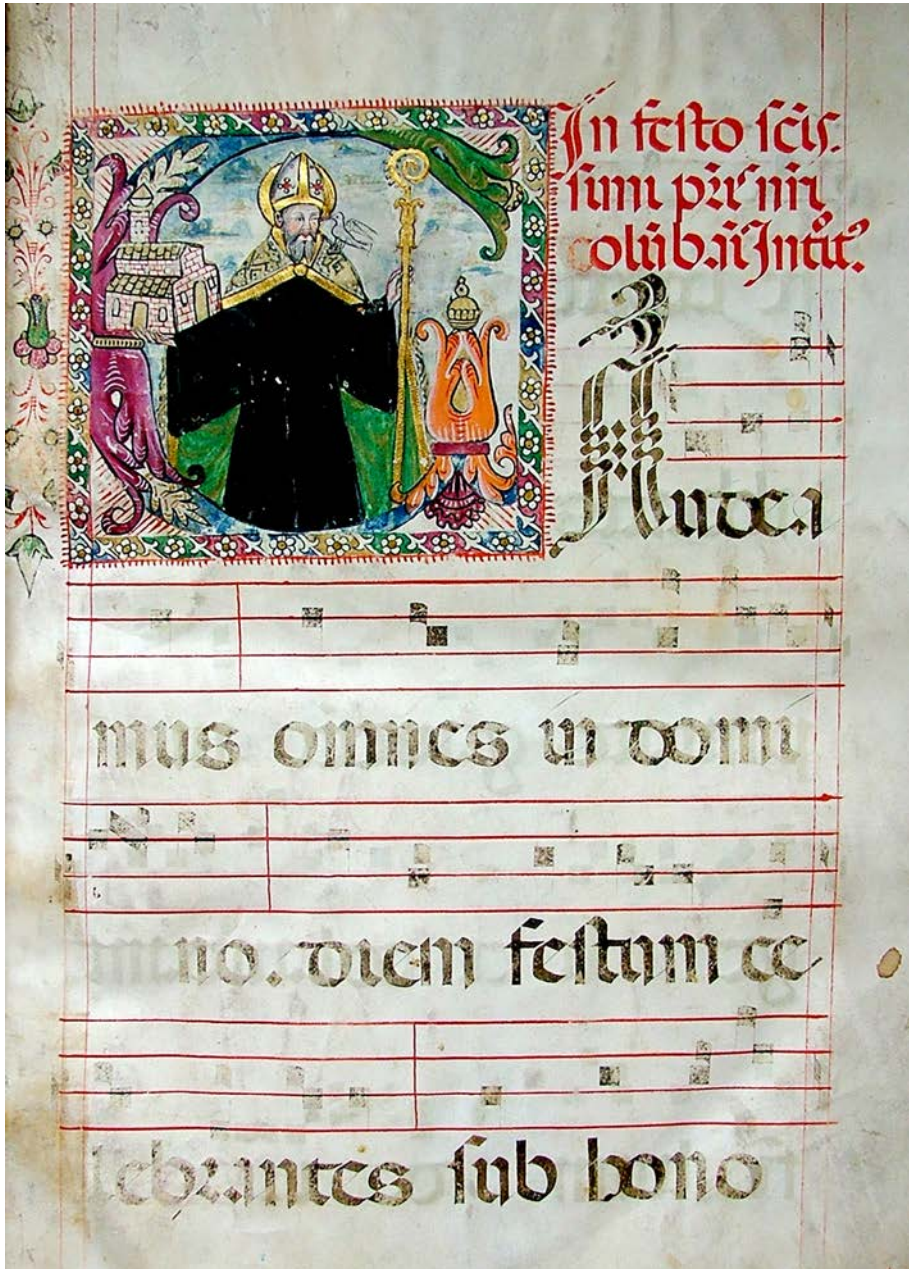 In festo scis-
simi pris nri
colūbāi Intit?
Gaudea
mus omnes in domi
no. diem festum ce
lebrantes sub hono